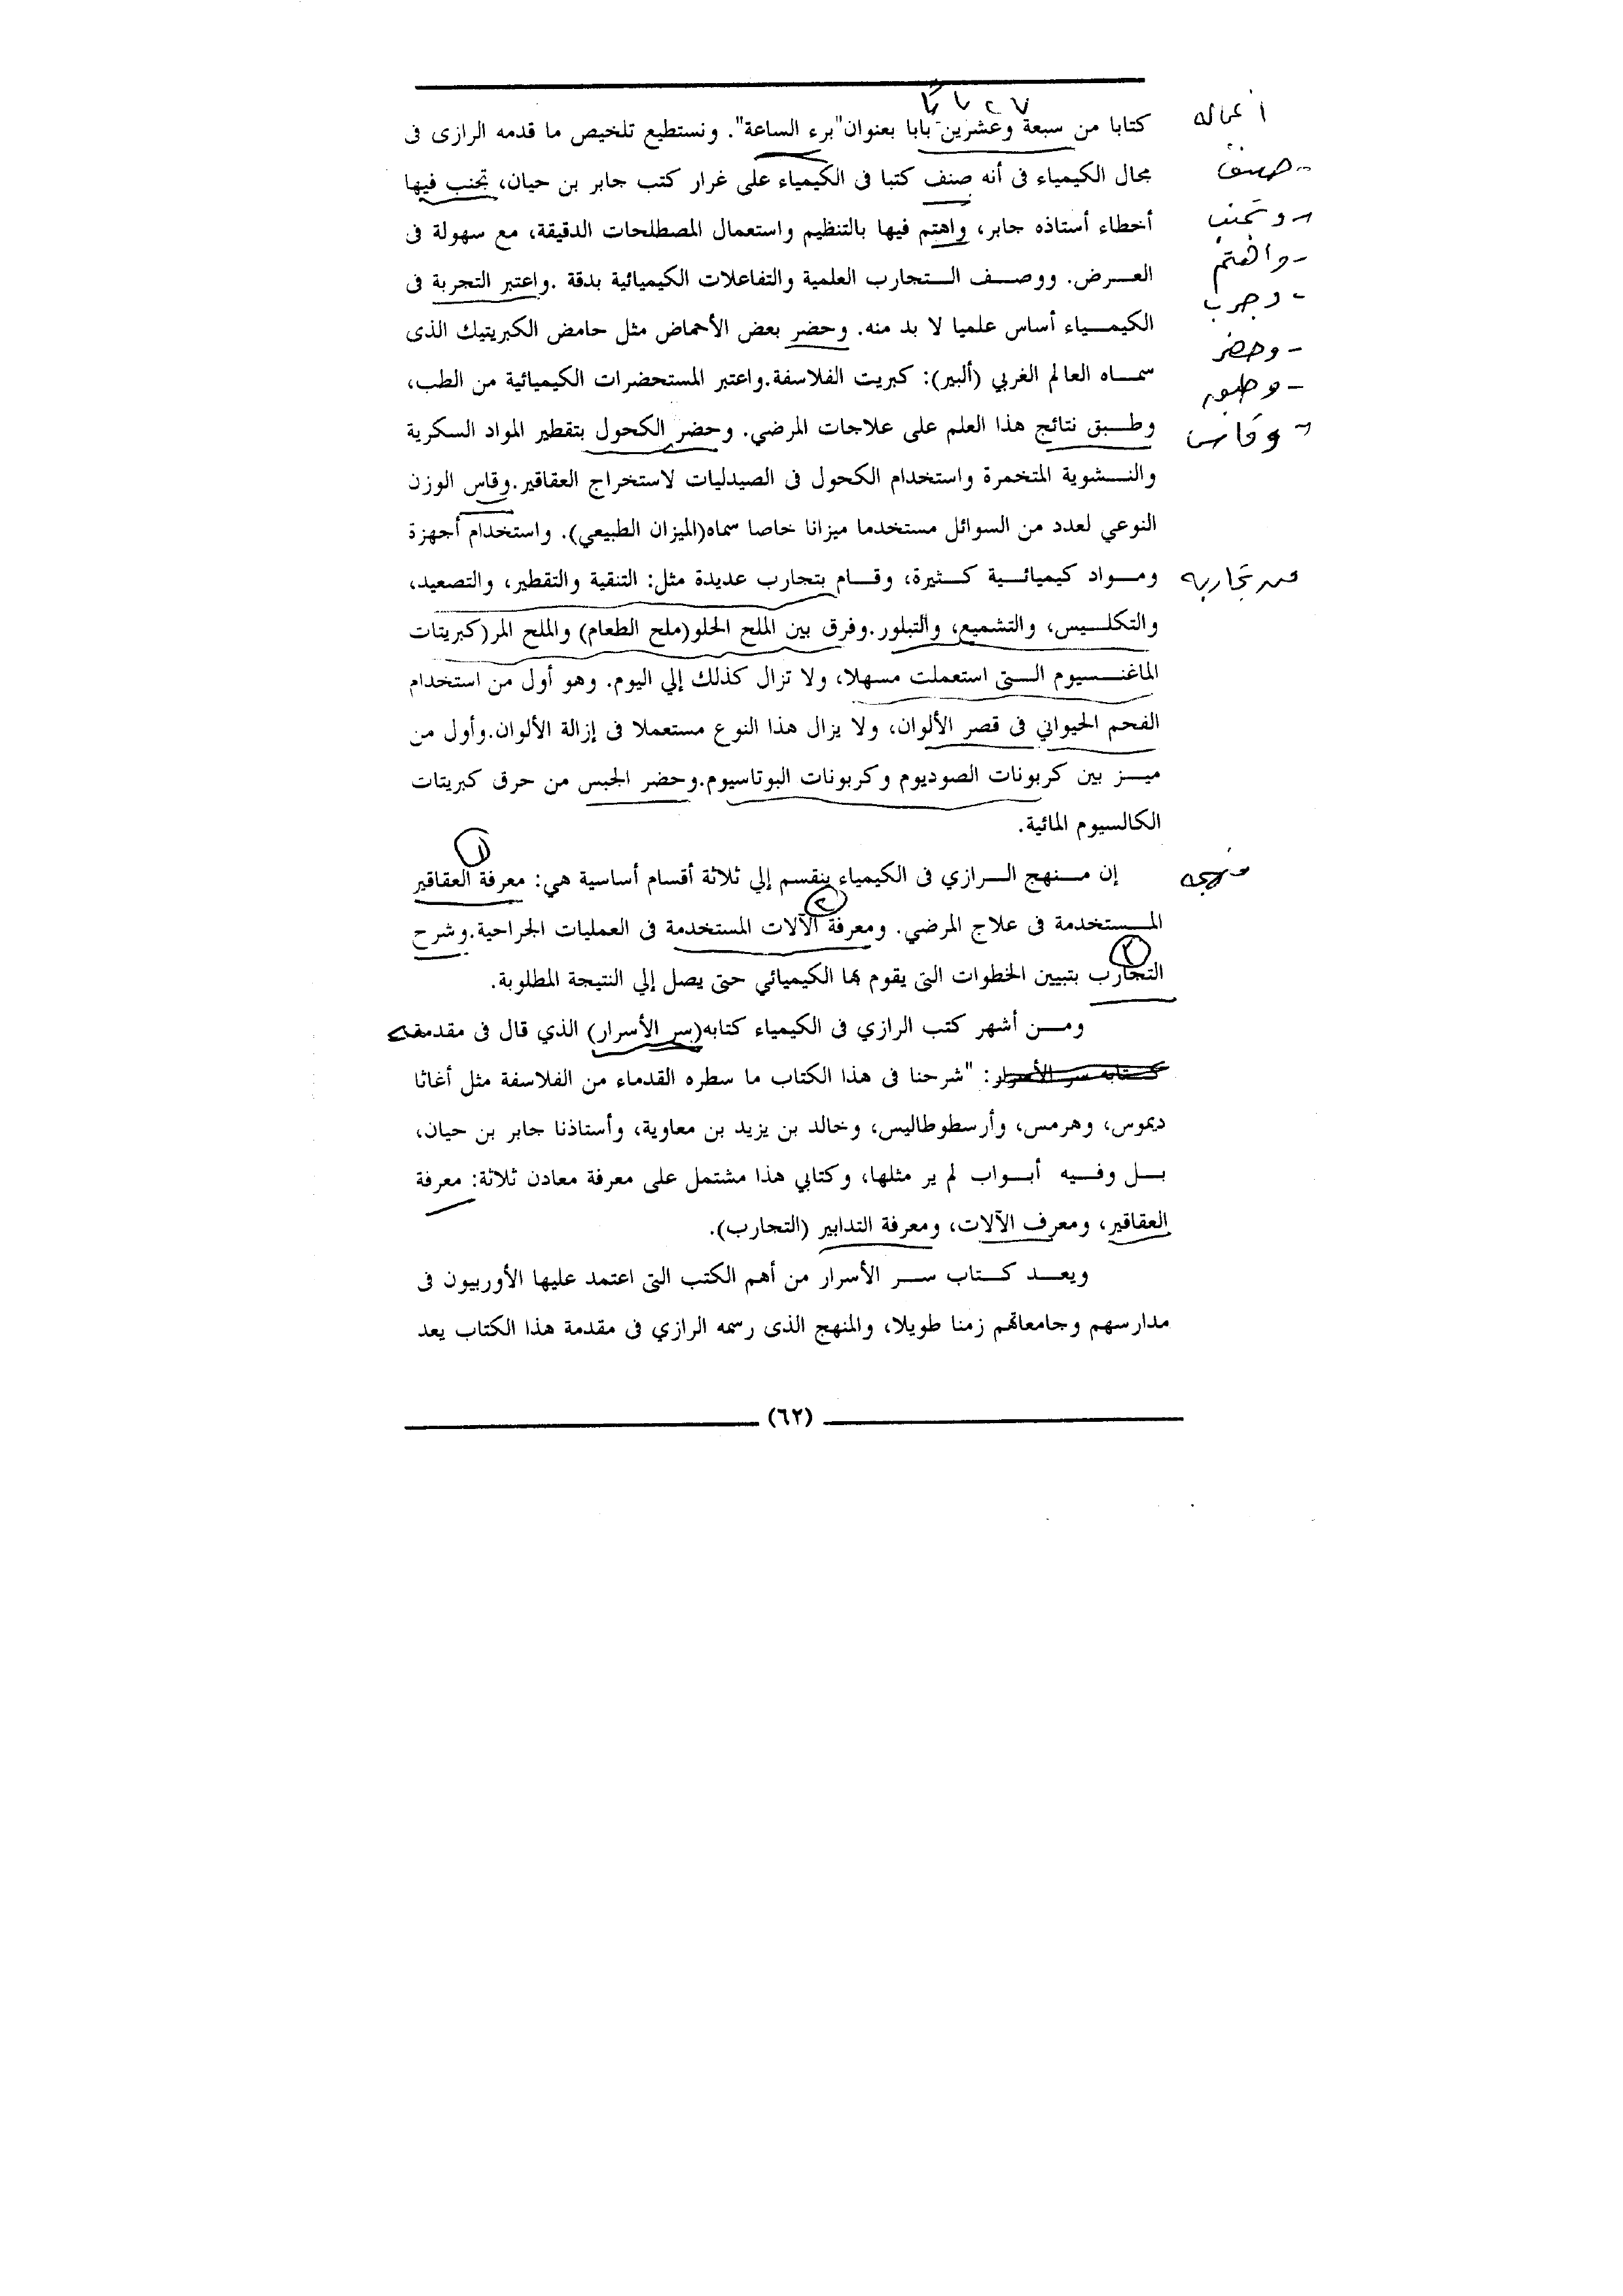 ٢٧ بابًا
أعماله
كتابا من سبعة وعشرين بابا بعنوان"برء الساعة". ونستطيع تلخيص ما قدمه الرازى فى
- صنف
مجال الكيمياء فى أنه صنف كتبا فى الكيمياء على غرار كتب جابر بن حيان، تجنب فيها
- وتجنب
أخطاء أستاذه جابر، واهتم فيها بالتنظيم واستعمال المصطلحات الدقيقة، مع سهولة فى
- واهتم
العرض. ووصف التجارب العلمية والتفاعلات الكيميائية بدقة .واعتبر التجربة فى
- وجرب
الكيمياء أساس علميا لا بد منه. وحضر بعض الأحماض مثل حامض الكبريتيك الذى
- وحضر
سماه العالم الغربي (ألبير): كبريت الفلاسفة.واعتبر المستحضرات الكيميائية من الطب،
- وطبق
وطبق نتائج هذا العلم على علاجات المرضي. وحضر الكحول بتقطير المواد السكرية
- وقاس
والنشوية المتخمرة واستخدام الكحول فى الصيدليات لاستخراج العقاقير.وقاس الوزن
النوعي لعدد من السوائل مستخدما ميزانا خاصا سماه(الميزان الطبيعي). واستخدام أجهزة
ومواد كيميائية كثيرة، وقام بتجارب عديدة مثل: التنقية والتقطير، والتصعيد،
من تجاربه
والتكليس، والتشميع، والتبلور.وفرق بين الملح الحلو(ملح الطعام) والملح المر(كبريتات
الماغنسيوم التى استعملت مسهلا، ولا تزال كذلك إلي اليوم. وهو أول من استخدام
الفحم الحيواني فى قصر الألوان، ولا يزال هذا النوع مستعملا فى إزالة الألوان.وأول من
ميز بين كربونات الصوديوم وكربونات البوتاسيوم.وحضر الجبس من حرق كبريتات
الكالسيوم المائية.
منهجه
إن منهج الرازي فى الكيمياء ينقسم إلي ثلاثة أقسام أساسية هي: معرفة العقاقير
المستخدمة فى علاج المرضي. ومعرفة الآلات المستخدمة فى العمليات الجراحية.وشرح
التجارب بتبيين الخطوات التى يقوم بها الكيميائي حتى يصل إلي النتيجة المطلوبة.
ومن أشهر كتب الرازي فى الكيمياء كتابه(سر الأسرار) الذي قال فى مقدمة
كتابه سر الأسرار: "شرحنا فى هذا الكتاب ما سطره القدماء من الفلاسفة مثل أغاثا
ديموس، وهرمس، وأرسطوطاليس، وخالد بن يزيد بن معاوية، وأستاذنا جابر بن حيان،
بل وفيه أبواب لم ير مثلها، وكتابي هذا مشتمل على معرفة معادن ثلاثة: معرفة
العقاقير، ومعرف الآلات، ومعرفة التدابير (التجارب).
ويعد كتاب سر الأسرار من أهم الكتب التى اعتمد عليها الأوربيون فى
مدارسهم وجامعاتهم زمنا طويلا، والمنهج الذى رسمه الرازي فى مقدمة هذا الكتاب يعد
(٦٢)